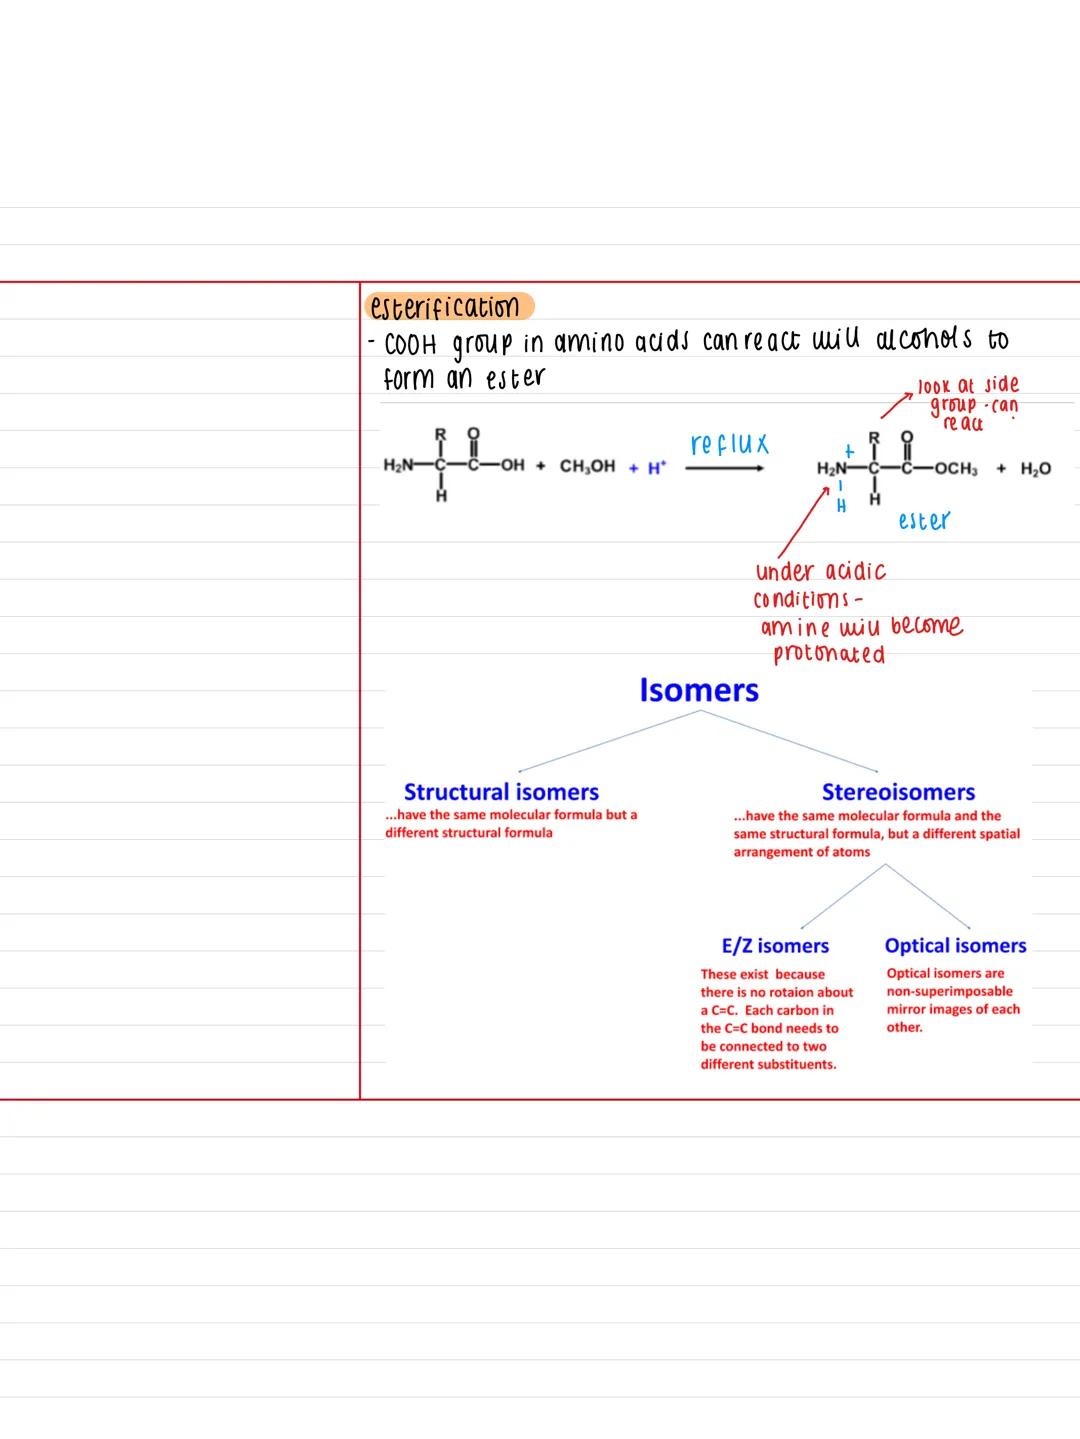 esterification
- COOH group in amino acids can react will alcohols to
form an ester
look at side
group - can
react
reflux
R O
H₂N—C—C—OH + CH₃OH + H⁺
H
+
R O
H₂N—C—C—OCH₃ + H₂O
H
H
ester
under acidic
conditions -
amine will become
protonated
Isomers
Structural isomers
...have the same molecular formula but a
different structural formula
Stereoisomers
...have the same molecular formula and the
same structural formula, but a different spatial
arrangement of atoms
E/Z isomers
These exist because
there is no rotaion about
a C=C. Each carbon in
the C=C bond needs to
be connected to two
different substituents.
Optical isomers
Optical isomers are
non-superimposable
mirror images of each
other.